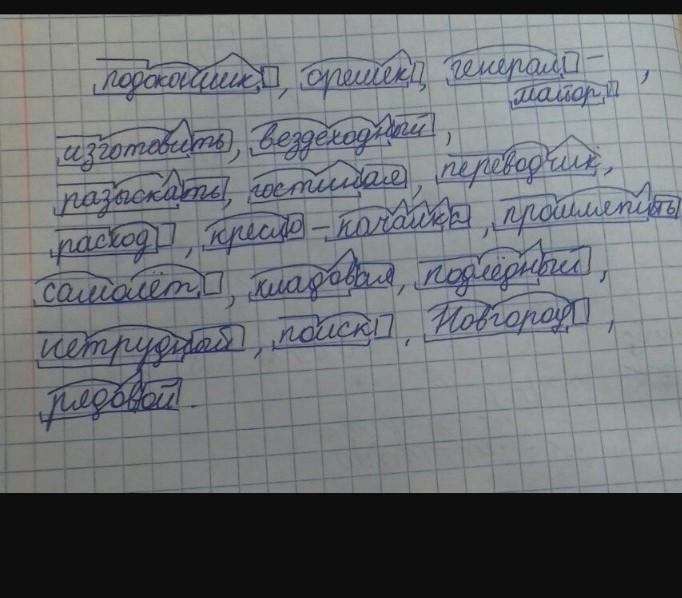 подоконник, орешек, генерал-,
майор
изготовить, вездеходный,
разыскать, гостиная, переводчик,
расход, кресло-качалка, прошипеть
самолёт, кладовая, подлёдный,
нетрудной, поиск, Новгород,
рядовой.